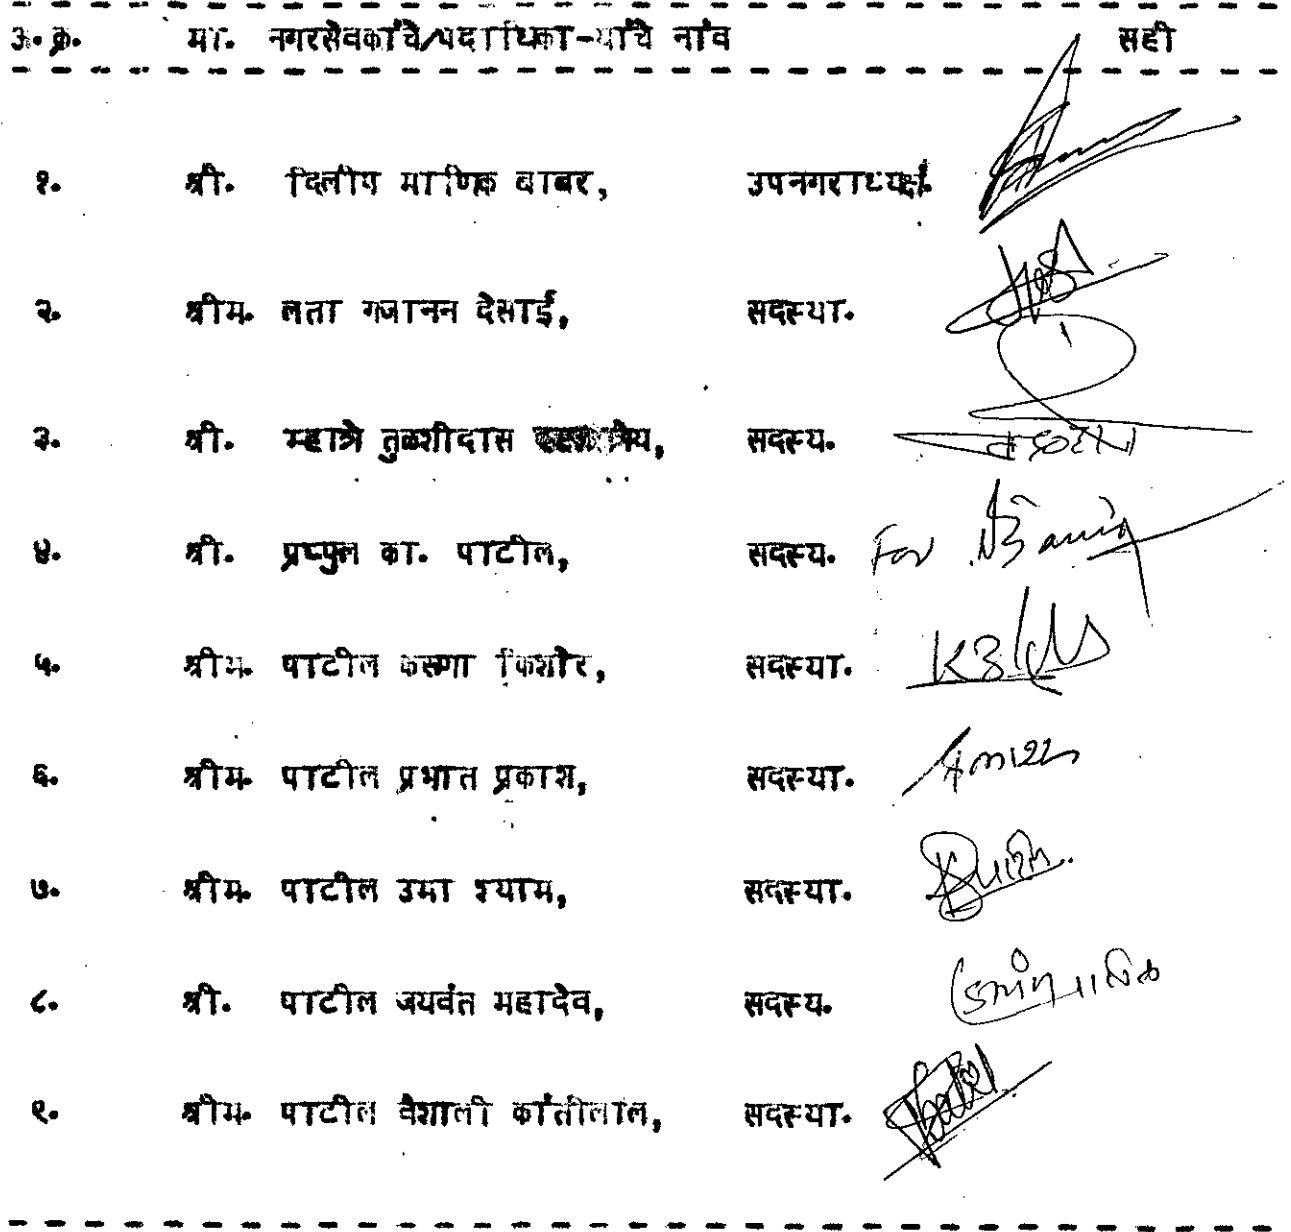 अ. क्र. मा. नगरसेवकांचे/पदाधिका-यांचे नांव सही
१. श्री. दिलीप माणिक बाबर, उपनगराध्यक्ष.
२. श्रीम. लता गजानन देसाई, सदस्या.
३. श्री. म्हात्रे तुळशीदास सदस्य.
४. श्री. प्रप्पुल का. पाटील, सदस्य. For
५. श्रीम. पाटील करुणा किशोर, सदस्या.
६. श्रीम. पाटील प्रभात प्रकाश, सदस्या.
७. श्रीम. पाटील उमा श्याम, सदस्या.
८. श्री. पाटील जयवंत महादेव, सदस्य.
९. श्रीम. पाटील वैशाली कांतीलाल, सदस्या.